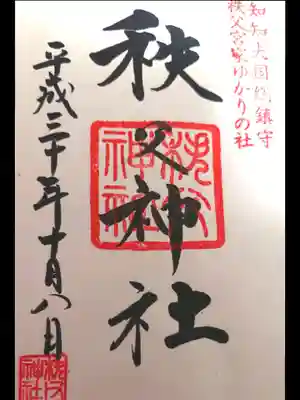 知知夫国総鎮守
秩父宮家ゆかりの社
秩父神社
秩父神社
平成三十年十月八日
秩父神社